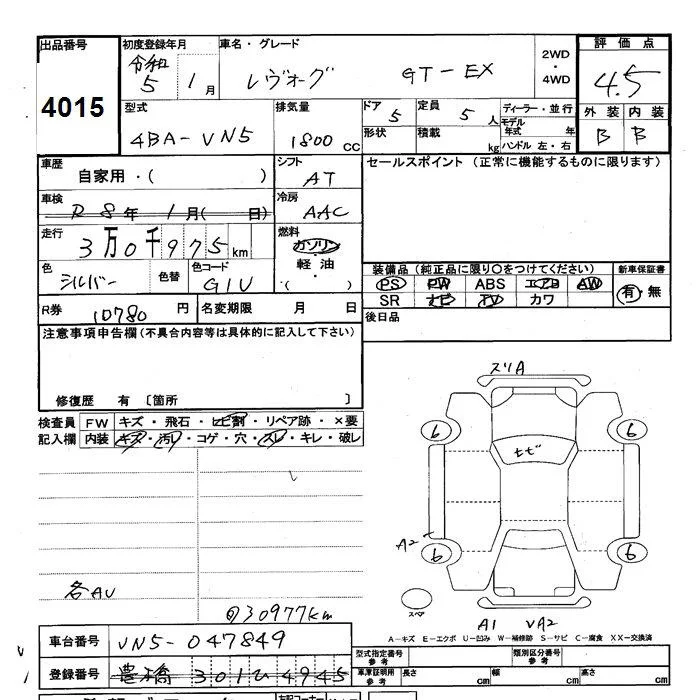 出品番号 初度登録年月 車名・グレード 2WD・4WD 評価点
4015 令和 5年 1月 レヴォーグ GT-EX 4.5
型式 排気量 ドア 定員 ディーラー・並行 外装 内装
4BA-VN5 1800 CC 5 5人 モデル年式 年 B B
形状 積載 kg ハンドル 左・右
車歴 自家用・( ) シフト AT セールスポイント (正常に機能するものに限ります)
車検 R8年 1月( 日) 冷房 AAC
走行 3万0千975km 燃料 ガソリン 軽油 ・( )
色 シルバー 色替 色コード G1U
装備品 (純正品に限り○をつけてください) 新車保証書
PS PW ABS エアB AW 有・無
SR ナビ TV カワ
R券 10780円 名変期限 月 日 後日品
注意事項申告欄(不具合内容等は具体的に記入して下さい)
修復歴 有 〔箇所 〕
検査員記入欄 FW キズ・飛石・ヒビ割・リペア跡・×要
内装 キズ・汚レ・コゲ・穴・スレ・キレ・破レ
スリA
6 6
ヒビ
A2
6 6
各AU
スペア
A1 VA2
30977km
A-キズ E-エクボ U-凹み W-補修跡 S-サビ C-腐食 XX-交換済
車台番号 VN5-047849
型式指定番号 参考 類別区分番号 参考
登録番号 豊橋 301 ひ 4945
車庫証明用 参考 長さ cm 幅 cm 高さ cm